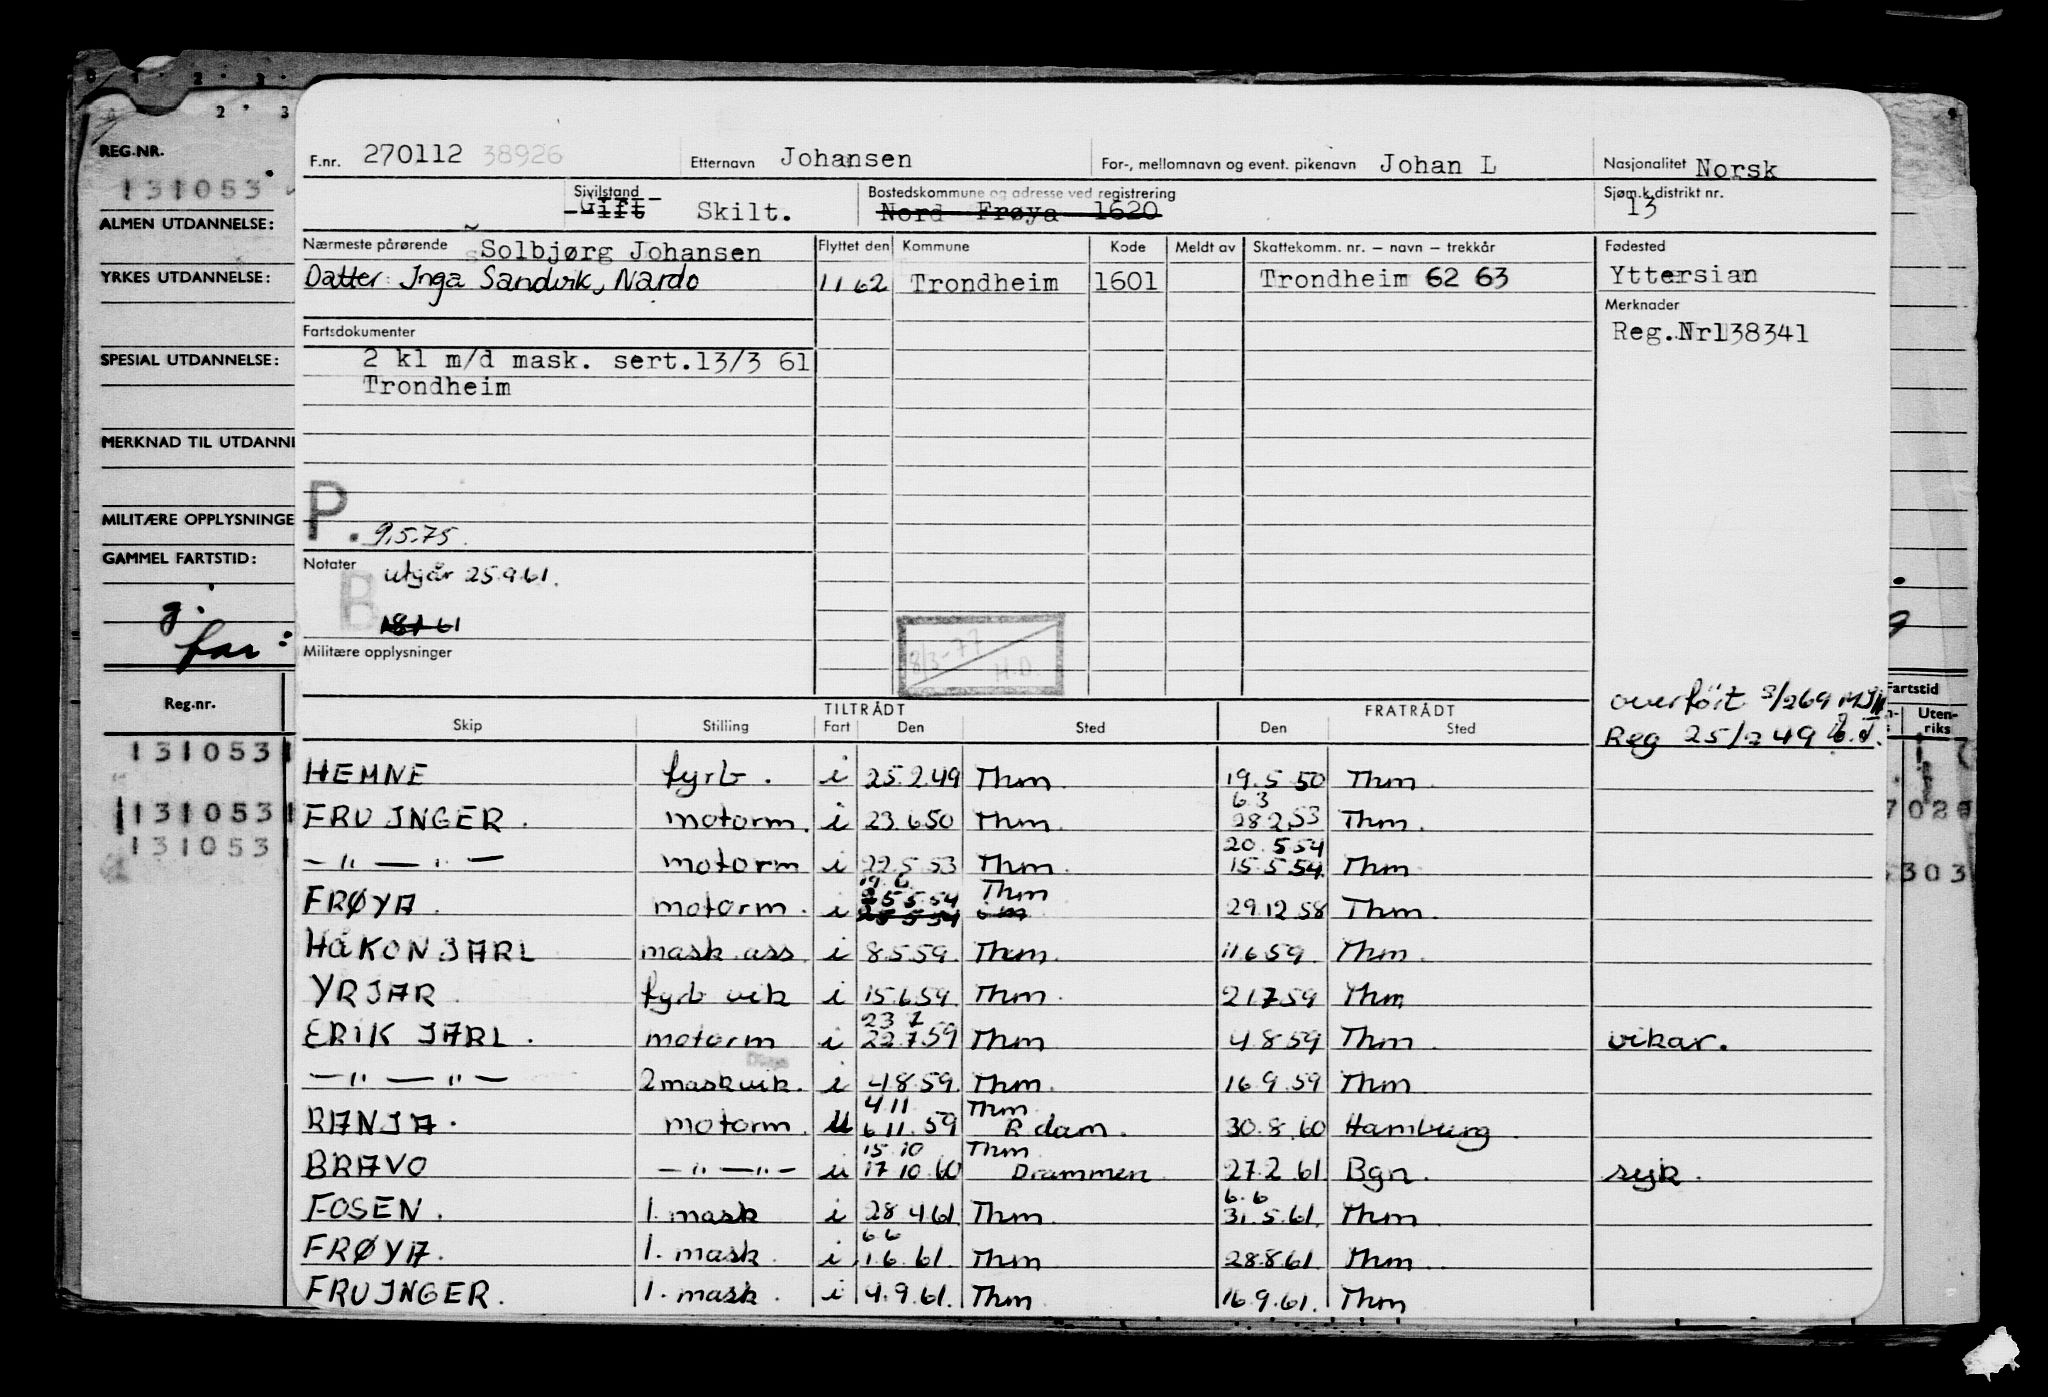 REG.NR.
131053
ALMEN UTDANNELSE:
YRKES UTDANNELSE:
SPESIAL UTDANNELSE:
MERKNAD TIL UTDANNE
MILITÆRE OPPLYSNINGE
GAMMEL FARTSTID:
far:
Reg.nr.
131053
131053
131053
F.nr. 270112 38926 Etternavn Johansen For-, mellomnavn og event. pikenavn Johan L Nasjonalitet Norsk
Sivilstand Gift Skilt. Bostedskommune og adresse ved registrering Nord Frøya 1620 Sjøm.k.distrikt nr. 13
Nærmeste pårørende Solbjørg Johansen Flyttet den Kommune Kode Meldt av Skattekomm. nr. – navn – trekkår Fødested
Datter: Inga Sandvik, Nardo 11 62 Trondheim 1601 Trondheim 62 63 Yttersian
Merknader
Fartsdokumenter Reg.Nr138341
2 kl m/d mask. sert.13/3 61
Trondheim
P. 9.5.75.
Notater utgår 25.9.61.
B
18 1 61
8/3-77 H.D.
Militære opplysninger
overført 3/2 69
Reg 25/2 49
TILTRÅDT FRATRÅDT
Skip Stilling Fart Den Sted Den Sted
HEMNE fyrb. i 25.2.49 Thm. 19.5 50 Thm.
6 3
FRU INGER. motorm. i 23.6.50 Thm. 28 2.53 Thm.
20.5.54
—"—"— motorm i 22.5.53 Thm. 15.5.54. Thm
19.6. Thm
25 5.54
FRØYA. motorm. i 25 5 54 29.12 58 Thm.
HÅKON JARL mask.ass i 8.5.59. Thm. 11 6 59. Thm.
YRJAR fyrb vik i 15.6.59. Thm. 21.7 59 Thm
23 7
ERIK JARL. motorm i 22.7.59 Thm 4.8.59 Thm. vikar.
—"—"— 2 mask vik. i 4.8.59. Thm. 16.9.59 Thm
4.11 Thm
RANJA. motorm. u 6.11.59 R dam. 30.8.60 Hamburg.
15 10 Thm
BRAVO —"—"— u 17 10.60 Drammen 27.2.61 Bgn. syk.
6.6
FOSEN. 1. mask i 28.4.61 Thm. 31.5.61. Thm
6 6
FRØYA. 1. mask. i 1.6.61. Thm 28.8.61. Thm.
FRU INGER. 1. mask. i 4.9.61. Thm 16.9.61. Thm
Fartstid
Uten-
riks
303